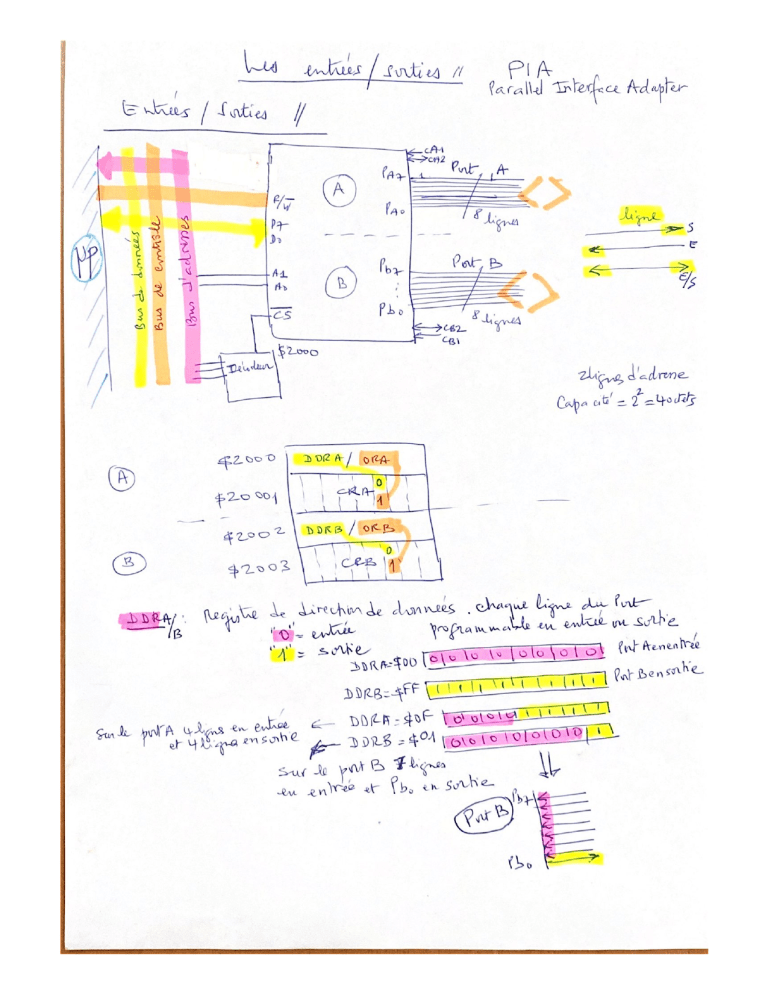 Les entrées/sorties //
PIA
Parallel Interface Adapter
Entrées / Sorties //
CA1
CA2
PA7
Port A
A
R/W
PA0
8 lignes
ligne
S
E
E/S
D7
D0
µP
Bus de données
Bus de contrôle
Bus d'adresses
Port B
Pb7
A1
A0
B
Pb0
8 lignes
CS
CB2
CB1
$2000
Décodeur
2 lignes d'adresse
Capacité = 2² = 4 octets
A
$2000 DDRA / ORA
0
$20001 CRA 1
$2002 DDRB / ORB
0
B
$2003 CRB 1
DDRA/B : Registre de direction de données. chaque ligne du Port
programmable en entrée ou sortie
"0" = entrée
"1" = sortie
DDRA=$00 0 0 0 0 0 0 0 0 Port A en entrée
DDRB=$FF 1 1 1 1 1 1 1 1 Port B en sortie
Sur le port A 4 lignes en entrée
et 4 lignes en sortie
← DDRA=$0F 0 0 0 0 1 1 1 1
← DDRB=$01 0 0 0 0 0 0 0 1
Sur le port B 7 lignes
en entrée et Pb0 en sortie
Port B
Pb7
Pb0